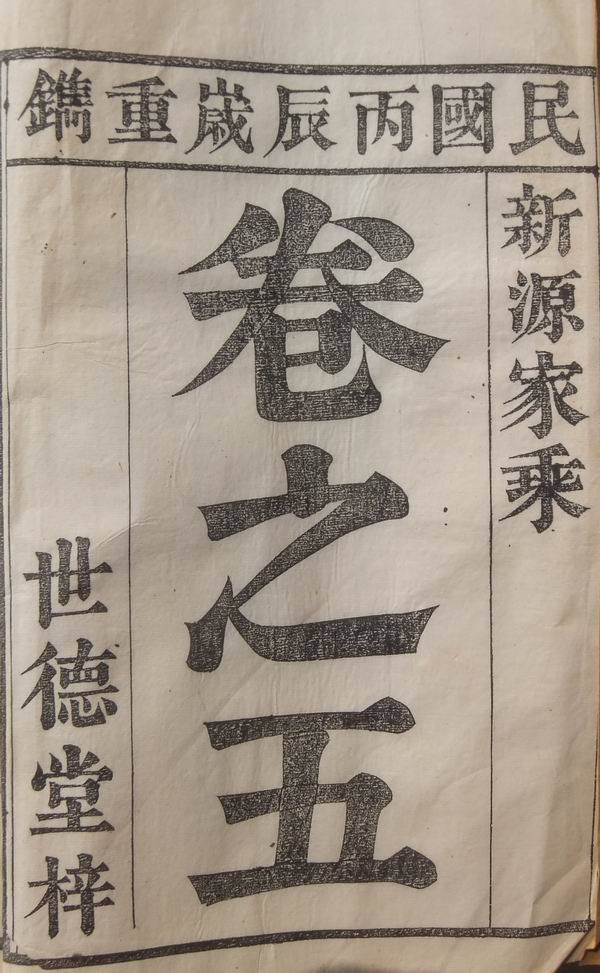 民國丙辰歲重鐫
新源家乘
卷之五
世德堂梓